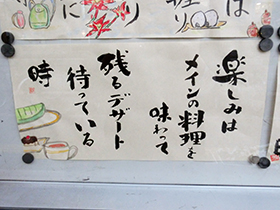 楽しみは
メインの料理を
味わって
残るデザート
待っている
時